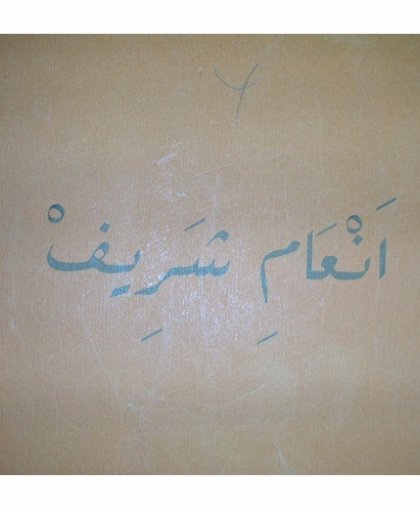 اَنْعَامِ شَرِيفْ